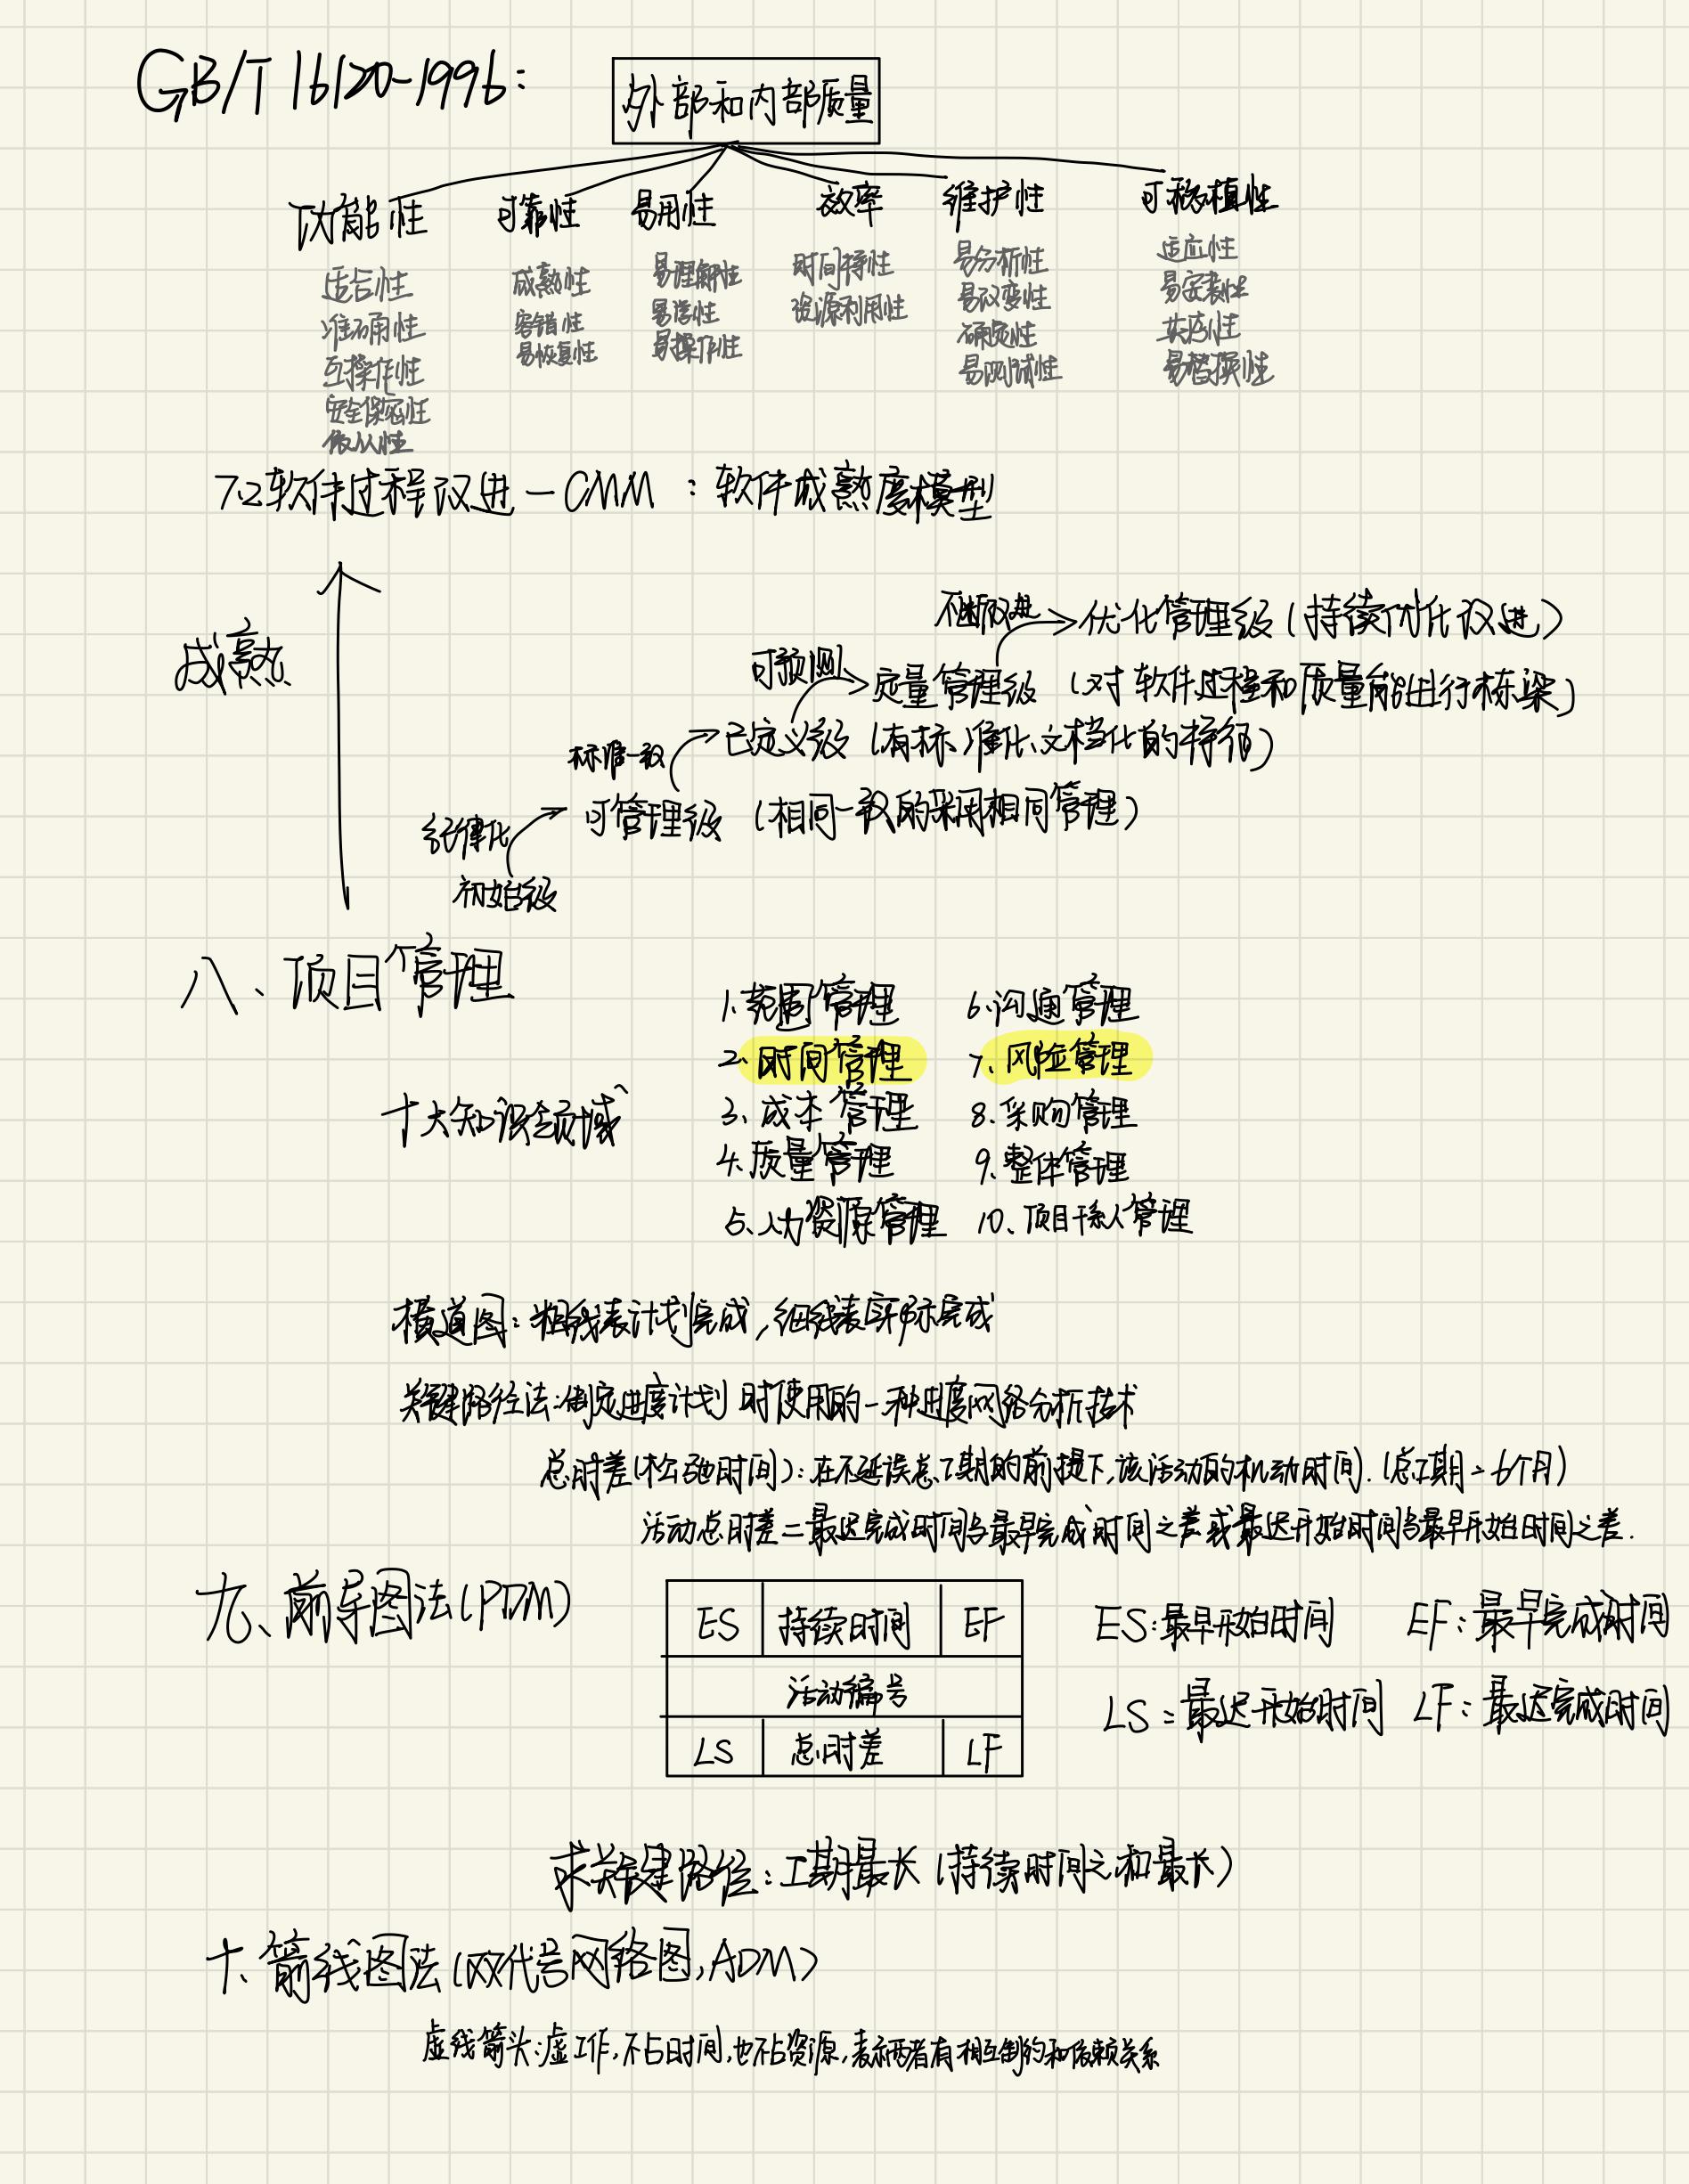 GB/T 16120-1996:
外部和内部质量
功能性 可靠性 易用性 效率 维护性 可移植性
适合性 成熟性 易理解性 时间特性 易分析性 适应性
准确性 容错性 易学性 资源利用性 易改变性 易安装性
互操作性 易恢复性 易操作性 稳定性 共存性
安全保密性 易测试性 易替换性
依从性
7.2软件过程改进-CMM:软件成熟度模型
成熟
不断改进 优化管理级(持续优化改进)
可预测 定量管理级 (对软件过程和质量能进行)
标准一致 已定义级 (有标准化、文档化的特征)
纪律化 可管理级 (相同一致的采用相同管理)
初始级
八、项目管理
十大知识领域
1.范围管理 6.沟通管理
2.时间管理 7.风险管理
3.成本管理 8.采购管理
4.质量管理 9.整体管理
5.人力资源管理 10、项目干系人管理
横道图:粗线表计划完成,细线表实际完成
关键路径法:制定进度计划时使用的一种进度网络分析技术
总时差(松弛时间):在不延误总工期的前提下,该活动的机动时间.(总工期=6个月)
活动总时差=最迟完成时间与最早完成时间之差或最迟开始时间与最早开始时间之差.
九、前导图法(PDM)
ES 持续时间 EF
活动编号
LS 总时差 LF
ES:最早开始时间 EF:最早完成时间
LS:最迟开始时间 LF:最迟完成时间
求关键路径:工期最长(持续时间之和最长)
十、箭线图法(双代号网络图,ADM)
虚线箭头:虚工作,不占时间,也不占资源,表示两者有相互制约和依赖关系